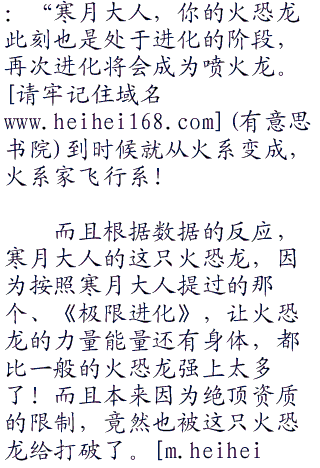 ：“寒月大人，你的火恐龙
此刻也是处于进化的阶段，
再次进化将会成为喷火龙。
[请牢记住域名
www.heihei168.com](有意思
书院)到时候就从火系变成，
火系家飞行系！
而且根据数据的反应，
寒月大人的这只火恐龙，因
为按照寒月大人提过的那
个、《极限进化》，让火恐
龙的力量能量还有身体，都
比一般的火恐龙强上太多
了！而且本来因为绝顶资质
的限制，竟然也被这只火恐
龙给打破了。[m.heihei